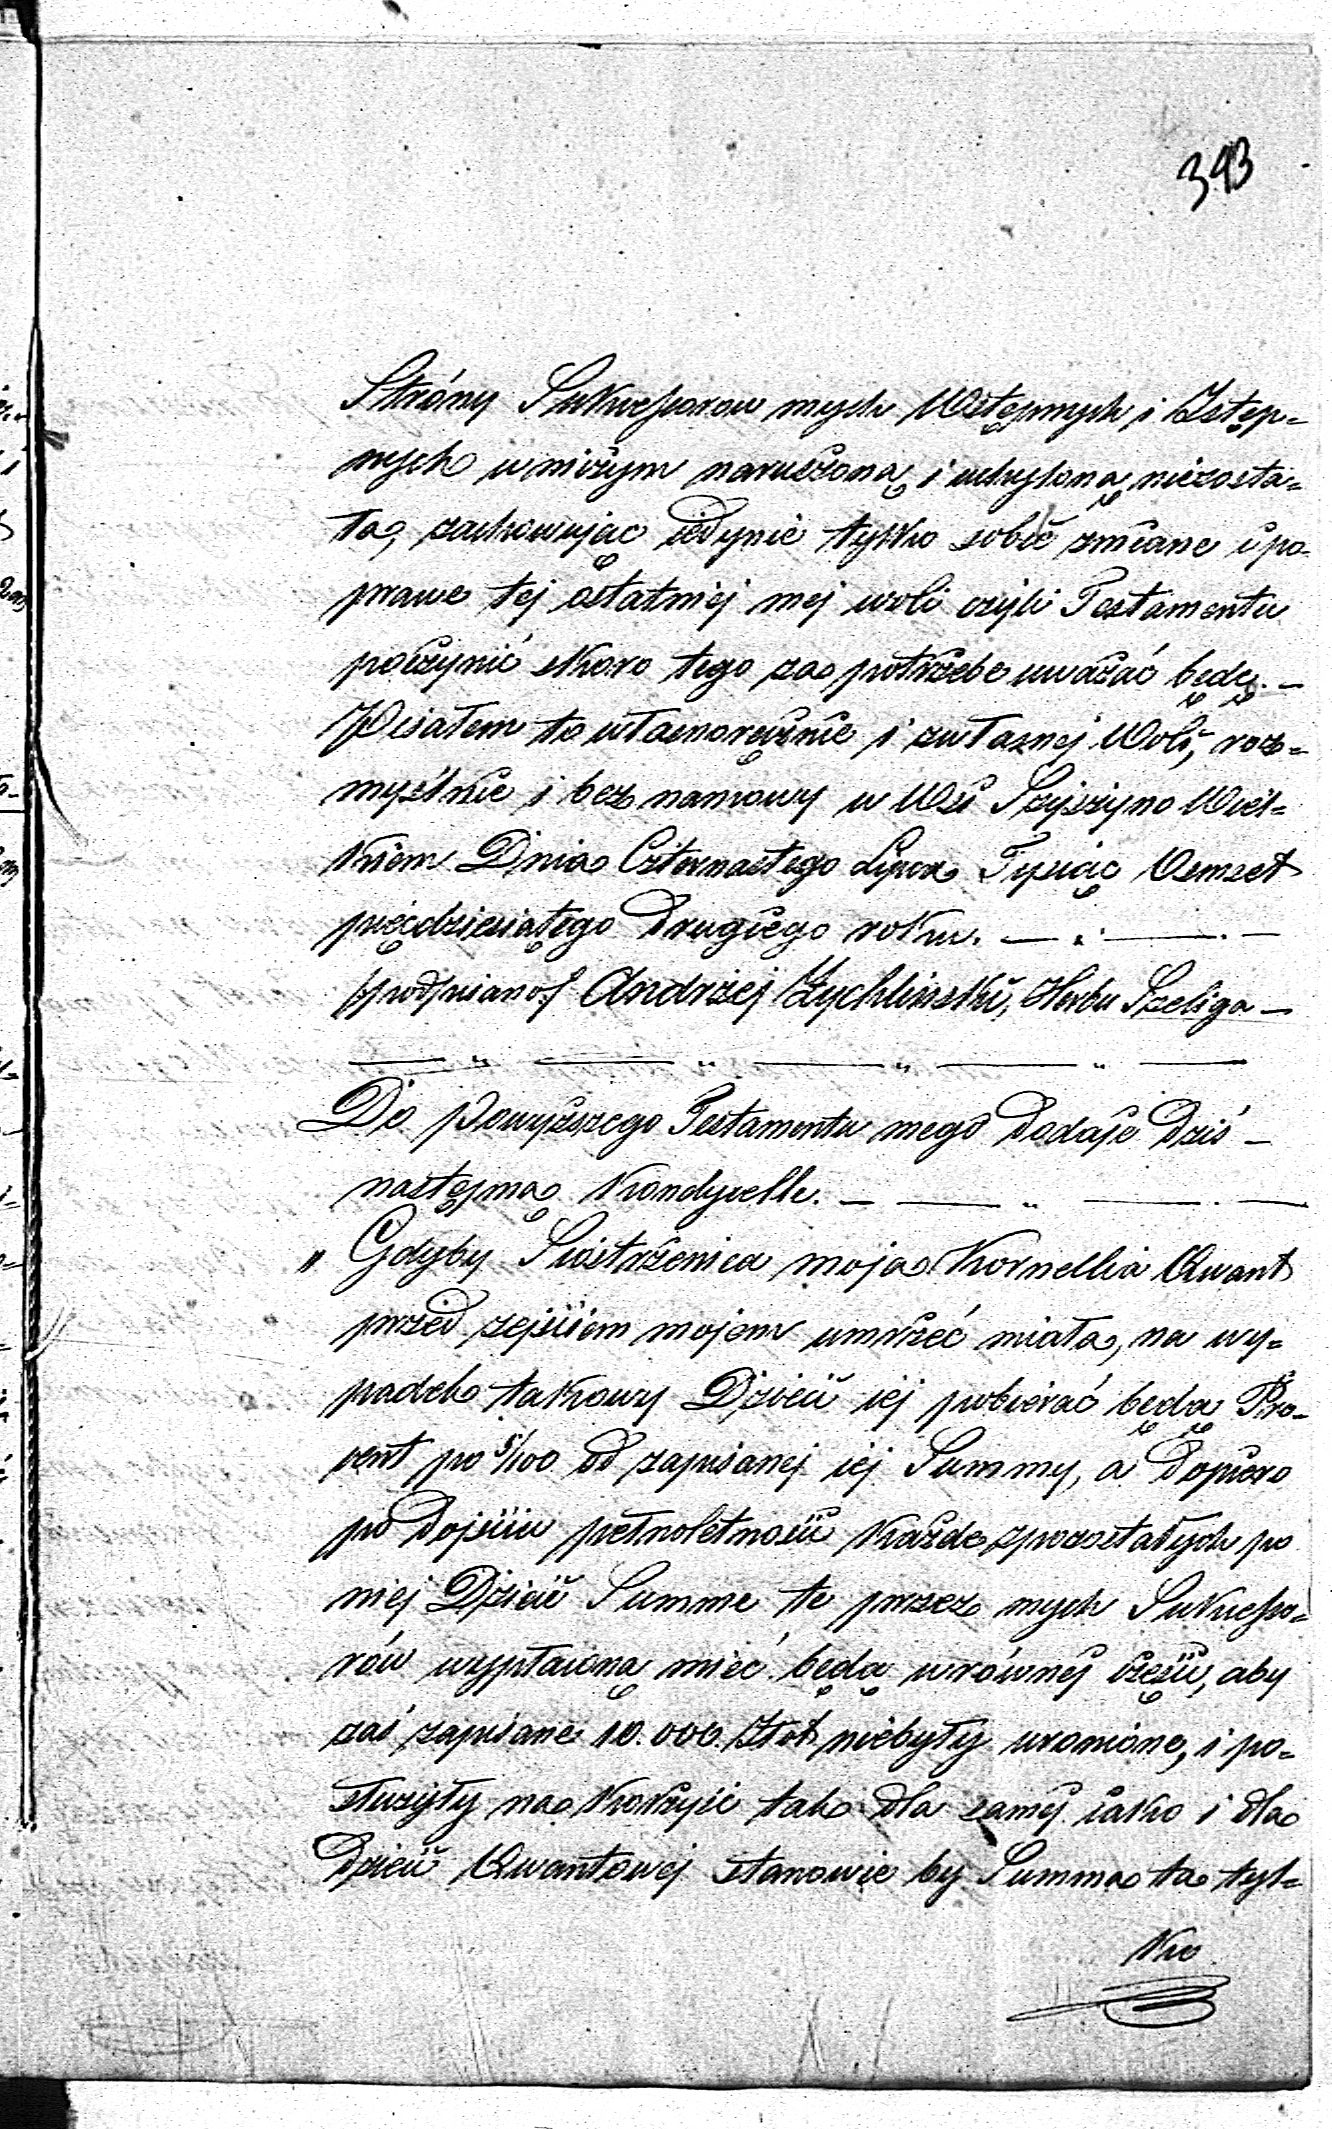 393
Stróny Sukcessorow mych Wstępnych i Zstęp=
nych w niczym naruszoną i uchyloną niezosta=
ła, zachowując iedynie tylko sobie zmiane i po-
prawe tej ostatniej mej woli czyli Testamentu
poczynić skoro tego za potrzebe uważać będę. —
Pisałem to własnoręcznie i zwłasnej Woli, roz=
myślnie i bez namowy w Wsi Szyszyno Wiel=
kiem Dnia Czternastego Lipca Tysiąc Osmset
pięćdziesiątego Drugiego roku. —
/podpisano/ Andrzej Zychlinski, Herbu Szeliga —
Do Powyższego Testamentu mego Dodaje Dziś —
następną Kondycelle. —
" Gdyby Siostrzenica moja Kornellia Qwant
przed zejściem mojem umrzeć miała, na wy=
padek takowy Dzieci iej pobierać będą Pro-
cent po 5/100 od zapisanej iej Summy, a Dopiero
po Dojściu pełnoletności każde zpozostałych po
niej Dzieci Summe te przez mych Sukcesso=
rów wypłaconą mieć będą w równej części, aby
zaś zapisane 10.000 Złot niebyły uronione, i po=
służyły na korzyść tak dla samej iako i dla
Dzieci Qwantowej stanowie by Summa ta tyl=
ko